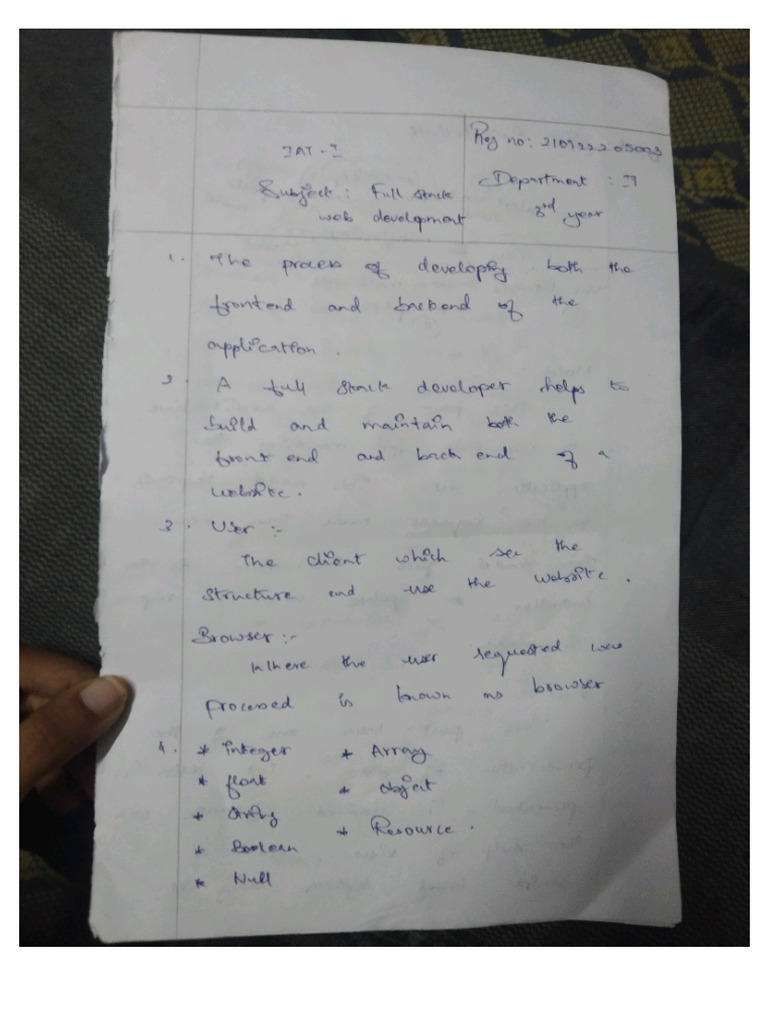 IAT - I
Reg no: 210922205003
Department : IT
3rd year
Subject : Full stack
web development
1. The process of developing both the
frontend and backend of the
application.
2. A full stack developer helps to
build and maintain both the
front end and back end of a
website.
3. User :-
The client which see the
structure and use the website.
Browser :-
Where the user requested were
processed is known as browser
4. * Integer * Array
* float * Object
* String
* Resource.
* Boolean
* Null